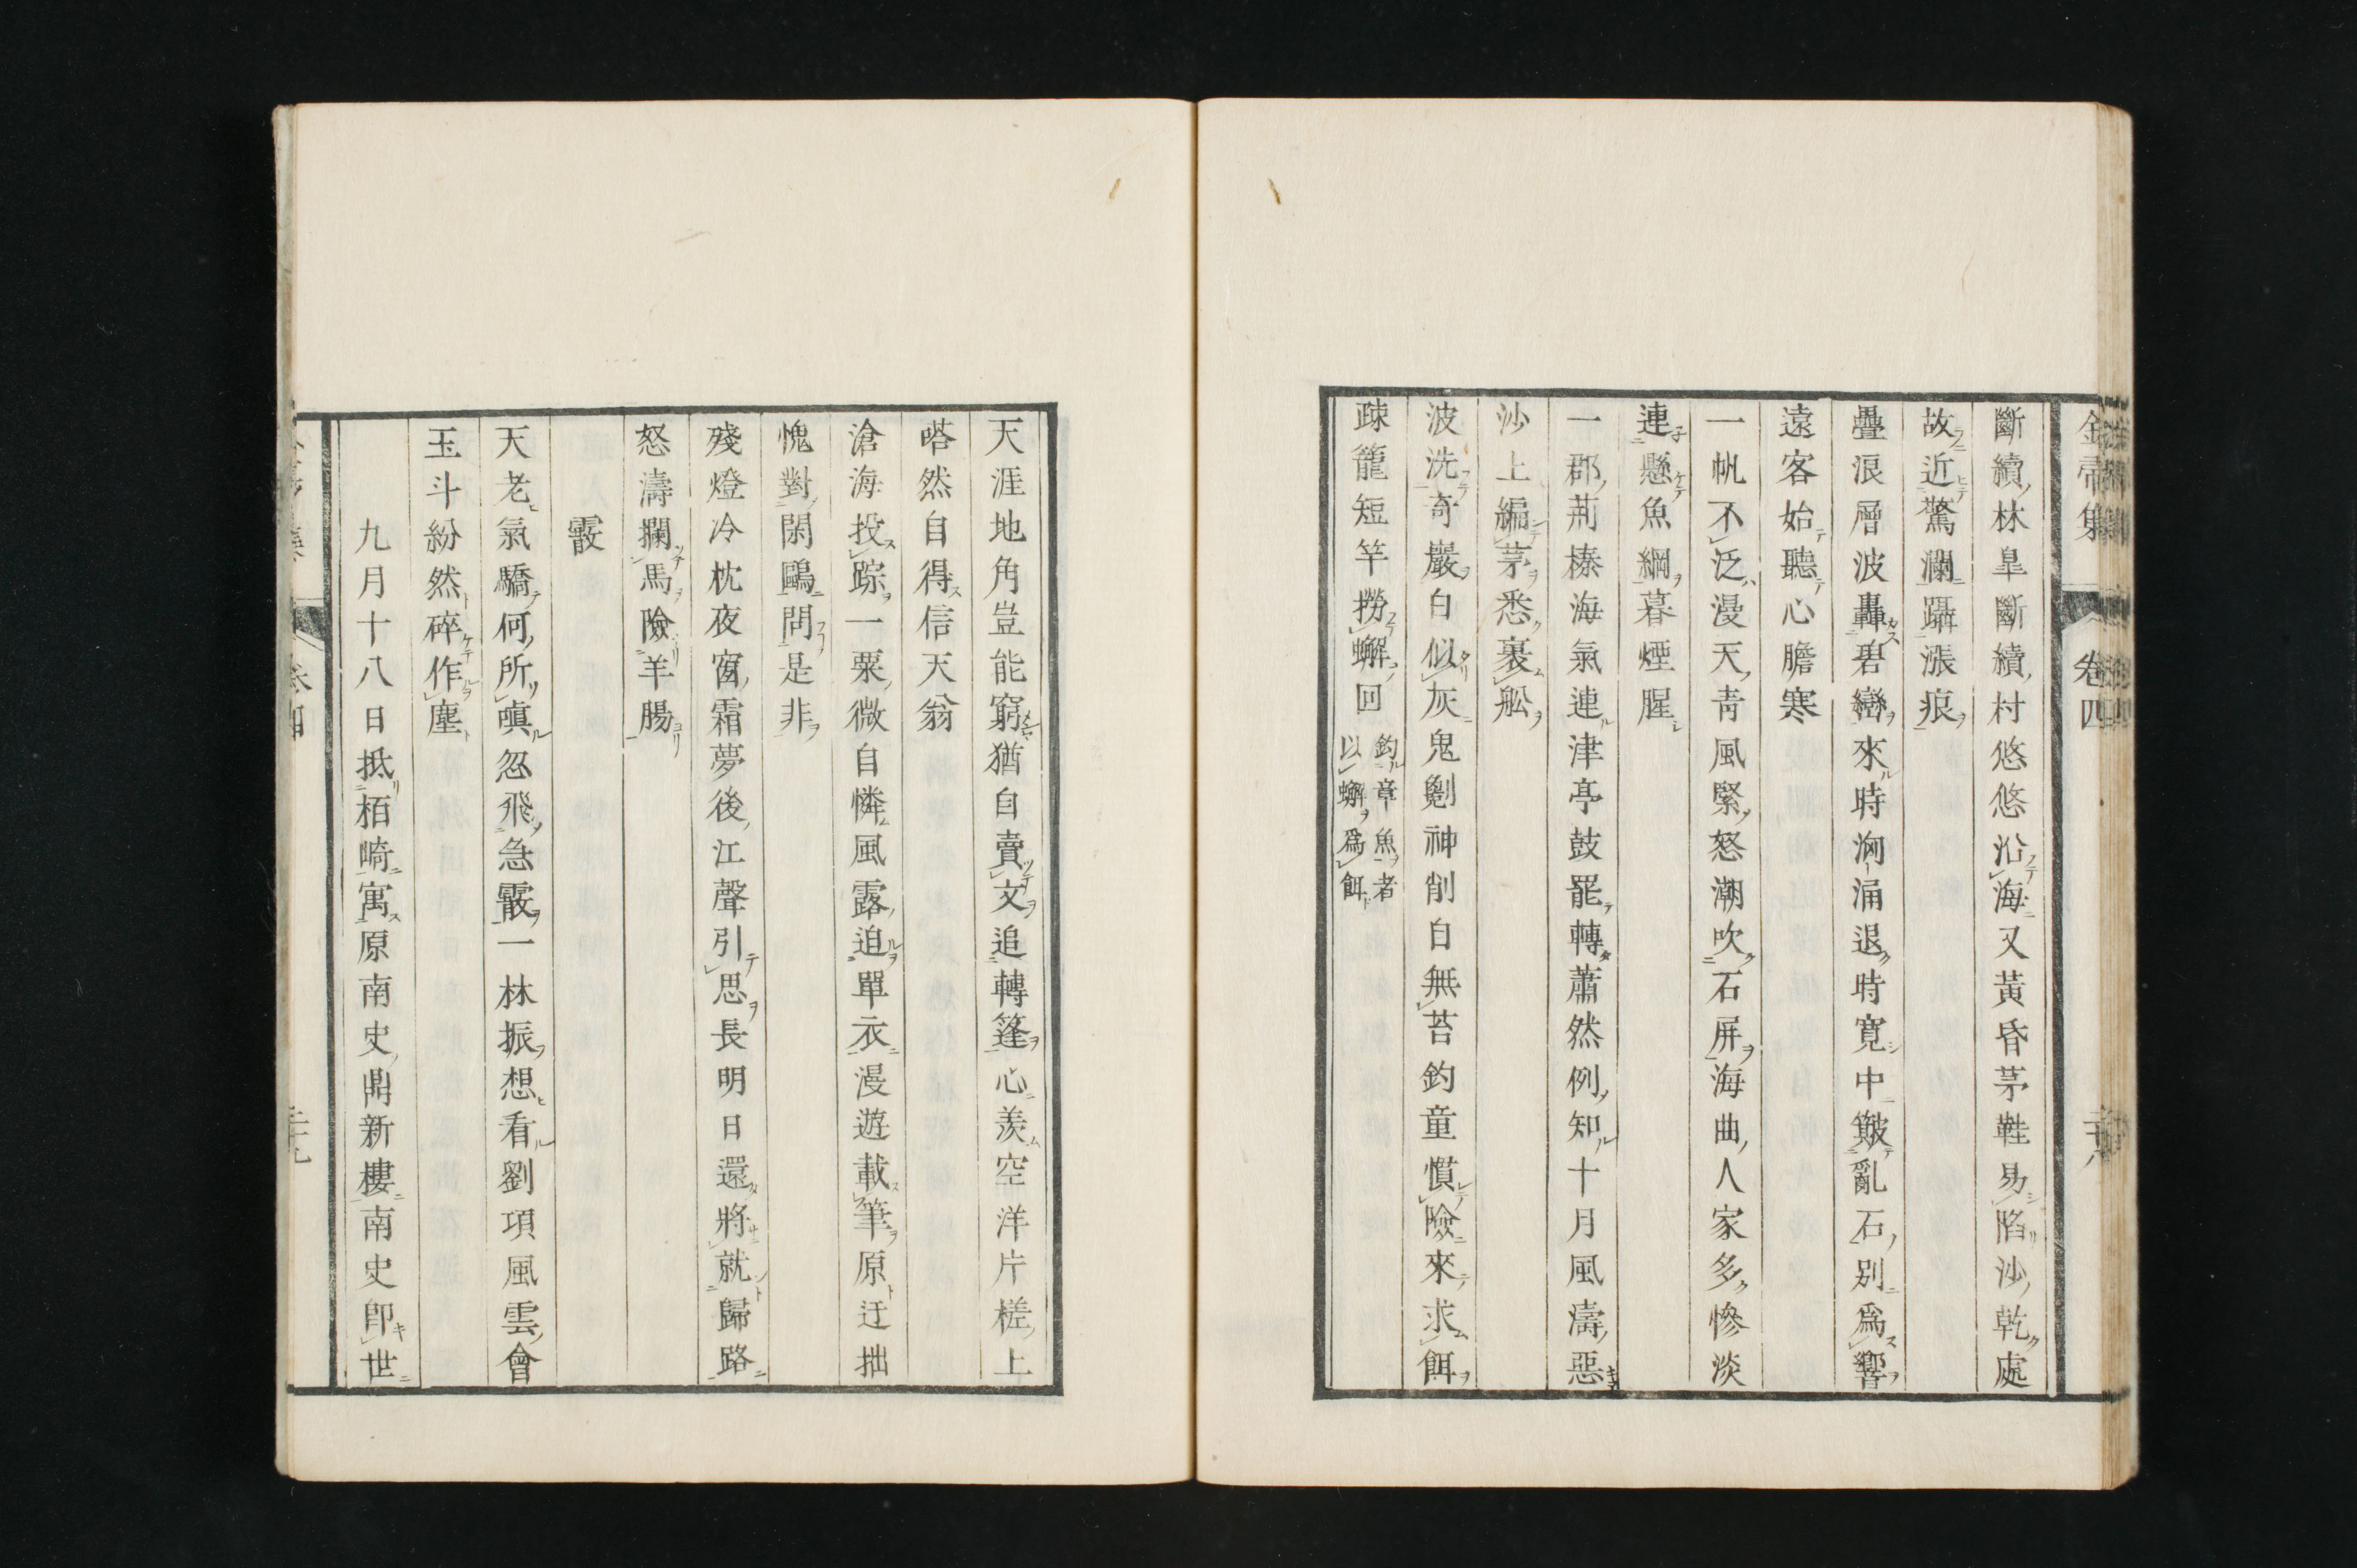 斷續林皐斷續村悠悠沿海又黃昏茅鞋易陷沙乾處
故近驚瀾躡漲痕
疊浪層波轟碧巒來時洶涌退時寬中皾亂石別爲響
遠客始聽心膽寒
一帆不泛漫天靑風緊怒潮吹石屏海曲人家多慘淡
連懸魚網暮煙腥
一郡荊榛海氣連津亭鼓罷轉蕭然例知十月風濤惡
沙上編茅悉裹舩
波洗奇巖白似灰鬼剜神削自無苔釣童慣險來求餌
疎籠短竿撈蠏回
釣章魚者
以蠏爲餌
卷四
天涯地角豈能窮猶自賣文追轉篷心羨空洋片槎上
嗒然自得信天翁
滄海投踪一粟微自憐風露迫單衣漫遊載筆原迂拙
愧對閑鷗問是非
殘燈冷枕夜窗霜夢後江聲引思長明日還將就歸路
怒濤攔馬險羊腸
霰
天老氣驕何所嗔忽飛急霰一林振想看劉項風雲會
玉斗紛然碎作塵
九月十八日抵栢崎寓原南史鼎新樓南史卽世